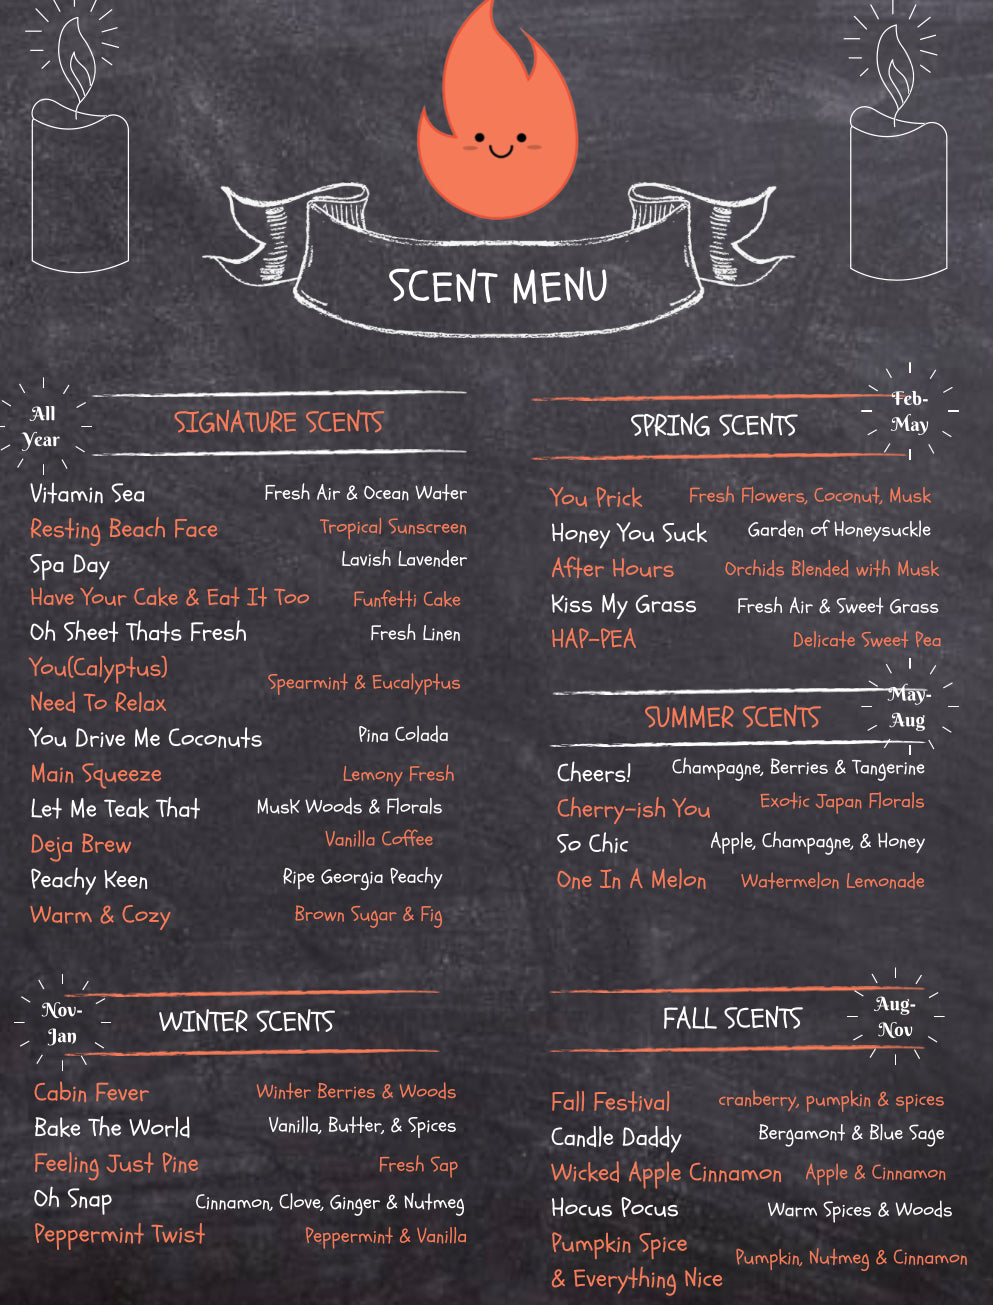 SCENT MENU
All
Year
SIGNATURE SCENTS
Vitamin Sea Fresh Air & Ocean Water
Resting Beach Face Tropical Sunscreen
Spa Day Lavish Lavender
Have Your Cake & Eat It Too Funfetti Cake
Oh Sheet Thats Fresh Fresh Linen
You(Calyptus)
Need To Relax Spearmint & Eucalyptus
You Drive Me Coconuts Pina Colada
Main Squeeze Lemony Fresh
Let Me Teak That Musk Woods & Florals
Deja Brew Vanilla Coffee
Peachy Keen Ripe Georgia Peachy
Warm & Cozy Brown Sugar & Fig
Feb-
May
SPRING SCENTS
You Prick Fresh Flowers, Coconut, Musk
Honey You Suck Garden of Honeysuckle
After Hours Orchids Blended with Musk
Kiss My Grass Fresh Air & Sweet Grass
HAP-PEA Delicate Sweet Pea
May-
Aug
SUMMER SCENTS
Cheers! Champagne, Berries & Tangerine
Cherry-ish You Exotic Japan Florals
So Chic Apple, Champagne, & Honey
One In A Melon Watermelon Lemonade
Nov-
Jan
WINTER SCENTS
Cabin Fever Winter Berries & Woods
Bake The World Vanilla, Butter, & Spices
Feeling Just Pine Fresh Sap
Oh Snap Cinnamon, Clove, Ginger & Nutmeg
Peppermint Twist Peppermint & Vanilla
Aug-
Nov
FALL SCENTS
Fall Festival cranberry, pumpkin & spices
Candle Daddy Bergamont & Blue Sage
Wicked Apple Cinnamon Apple & Cinnamon
Hocus Pocus Warm Spices & Woods
Pumpkin Spice
& Everything Nice Pumpkin, Nutmeg & Cinnamon